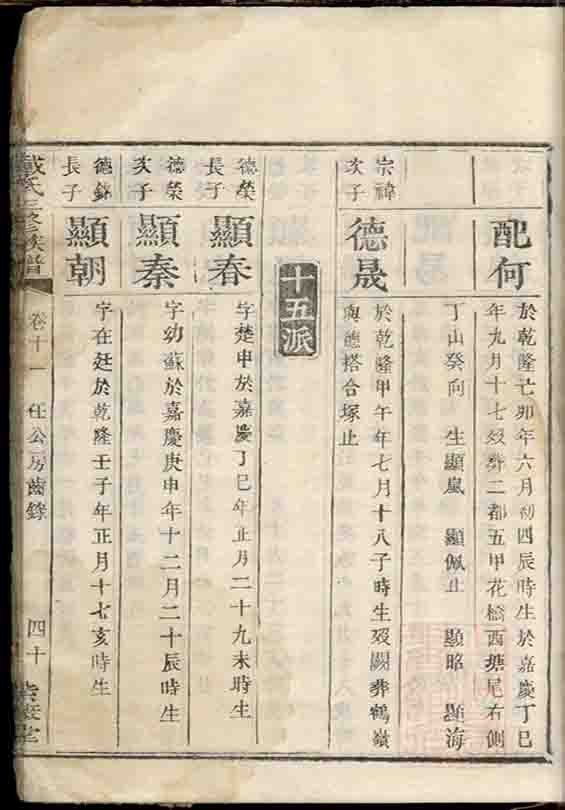 配何
於乾隆己卯年六月初四辰時生於嘉慶丁巳
年九月十七歿葬二都五甲花橋西塘尾右側
丁山癸向 生顯嵐 顯佩止 顯昭 顯海
宗禕
次子
德晟
於乾隆甲午年七月十八子時生歿闕葬鶴嶺
與德搭合塚止
十五派
德榮
長子
顯春
字楚申於嘉慶丁巳年正月二十九未時生
德榮
次子
顯秦
字幼蘇於嘉慶庚申年十二月二十辰時生
德錄
長子
顯朝
字在廷於乾隆壬子年正月十七亥時生
戴氏三修族譜 卷十一 任公房齒錄 四十